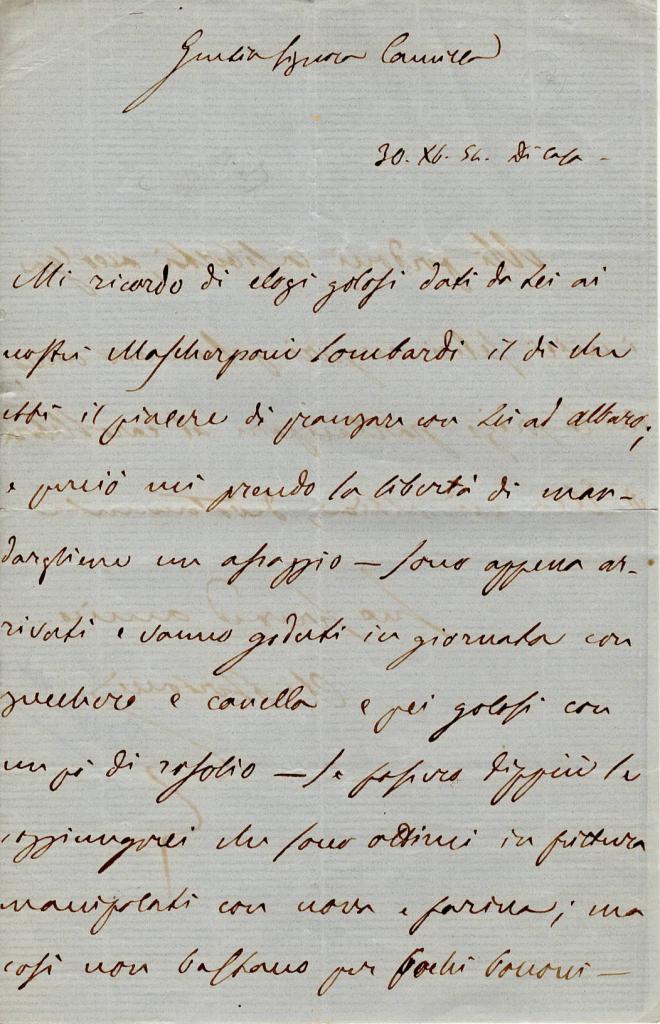 Gentil Signora Camilla
30. Xb. 54. Di casa -
Mi ricordo di elogi golosi dati da Lei ai
nostri Mascherponi Lombardi il dì che
ebbi il piacere di pranzare con Lei ad Albaro;
e perciò mi prendo la libertà di man-
dargliene un assaggio — Sono appena ar-
rivati e vanno goduti in giornata con
zucchero e canella e pei golosi con
un pò di rosolio — Se fossero dippiù le
aggiungerei che sono ottimi in frittura
manipolati con nova e farina; ma
così non bastano per pochi bocconi —